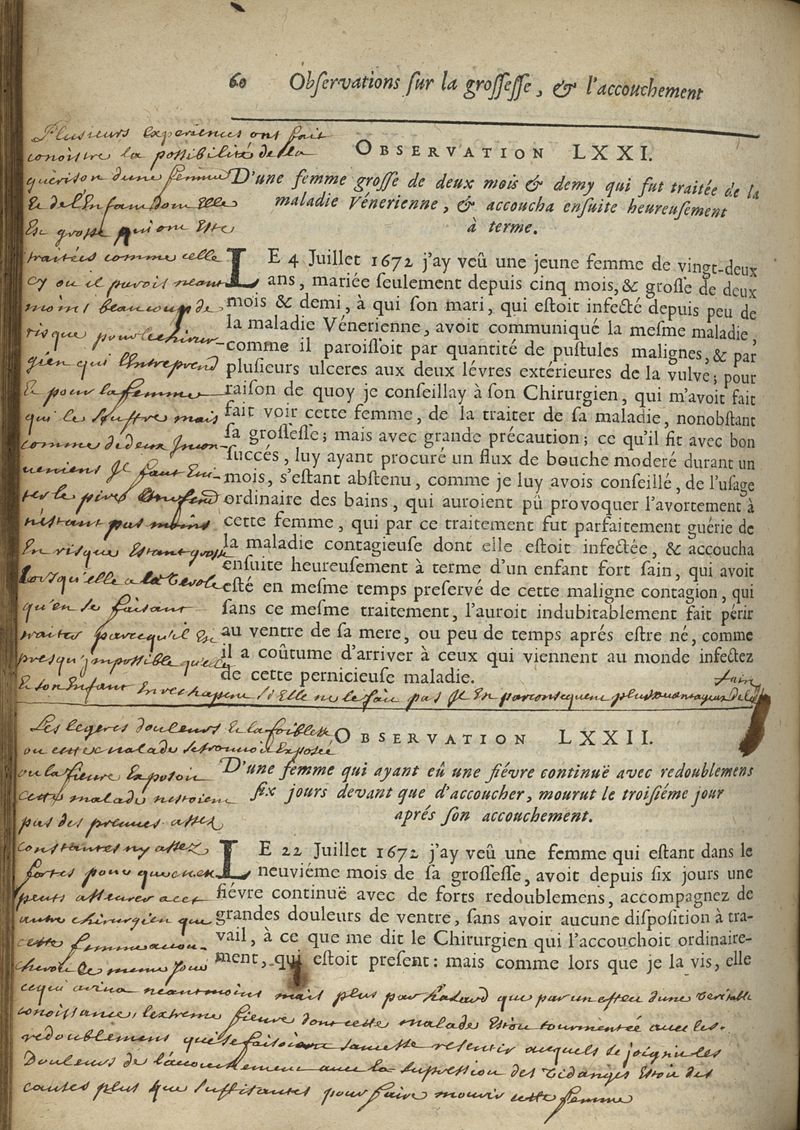 60 Obſervations ſur la groſſeſſe, & l'accouchement
OBSERVATION LXXI.
D'une femme groſſe de deux mois & demy qui fut traitée de la
maladie Vénerienne, & accoucha enſuite heureuſement
à terme.
LE 4 Juillet 1672 j'ay veû une jeune femme de vingt-deux
ans, mariée ſeulement depuis cinq mois, & groſſe de deux
mois & demi, à qui ſon mari, qui eſtoit infecté depuis peu de
la maladie Vénerienne, avoit communiqué la meſme maladie,
comme il paroiſſoit par quantité de puſtules malignes, & par
pluſieurs ulceres aux deux lévres extérieures de la vulve; pour
raiſon de quoy je conſeillay à ſon Chirurgien, qui m'avoit fait
fait voir cette femme, de la traiter de ſa maladie, nonobſtant
ſa groſſeſſe; mais avec grande précaution; ce qu'il fit avec bon
ſuccés, luy ayant procuré un flux de bouche moderé durant un
mois, s'eſtant abſtenu, comme je luy avois conſeillé, de l'uſage
ordinaire des bains, qui auroient pû provoquer l'avortement à
cette femme, qui par ce traitement fut parfaitement guérie de
la maladie contagieuſe dont elle eſtoit infectée, & accoucha
enſuite heureuſement à terme d'un enfant fort ſain, qui avoit
eſté en meſme temps preſervé de cette maligne contagion, qui
ſans ce meſme traitement, l'auroit indubitablement fait périr
au ventre de ſa mere, ou peu de temps aprés eſtre né, comme
il a coûtume d'arriver à ceux qui viennent au monde infectez
de cette pernicieuſe maladie.
Plusieurs experiences ont fait
conoistre la possibilité de la
guerison dune femme
Et de l'Enfant dont Elle
Est grosse qui ont Esté
traitées comme celle
cy ou il paroit neant
moins beaucoup de
risque pour le chirur-
gien qui l'Entreprend
Et pour la femme
qui le souffre mais
comme de deux Incon-
veniens Il faut Evi-
ter le pire
nestant pas moins
En risque Estant grosse
lorsqu'elle a la verole
qu'en se faisant
traiter parcequ'il Est
presqu'impossible qu'elle
Et son Enfant En rechapent si Elle ne le fait pas Il Est parconsequent plus avantageux de le
faire
OBSERVATION LXXII.
D'une femme qui ayant eû une fiévre continuë avec redoublemens
ſix jours devant que d'accoucher, mourut le troiſiéme jour
aprés ſon accouchement.
LE 22 Juillet 1672 j'ay veû une femme qui eſtant dans le
neuviéme mois de ſa groſſeſſe, avoit depuis ſix jours une
fiévre continuë avec de forts redoublemens, accompagnez de
grandes douleurs de ventre, ſans avoir aucune diſpoſition à tra-
vail, à ce que me dit le Chirurgien qui l'accouchoit ordinaire-
ment, qui eſtoit preſent: mais comme lors que je la vis, elle
Les legeres douleurs Et la foiblesse
ou cette malade se trouvoit Exposée
ou la fievre Exposoit
cette malade nestoient
pas des preuves assez
constantes ny assez
fortes pour
peuts asseurer a cet
autre chirurgien que
cette femme acou-
cheroit le meme jour
ce qui ariva neantmoins mais plus par hazard que par un effet dune veritable
conoissance, l'extreme fievre dont cette malade Estoit tourmentée avec les
redoublemens qui se faisoient sans cesse resentir auquels se joignit les
Douleurs de l'acouchement avec la supression des vidanges Estoit des
causes plus que suffisantes pour faire mourir cette femme